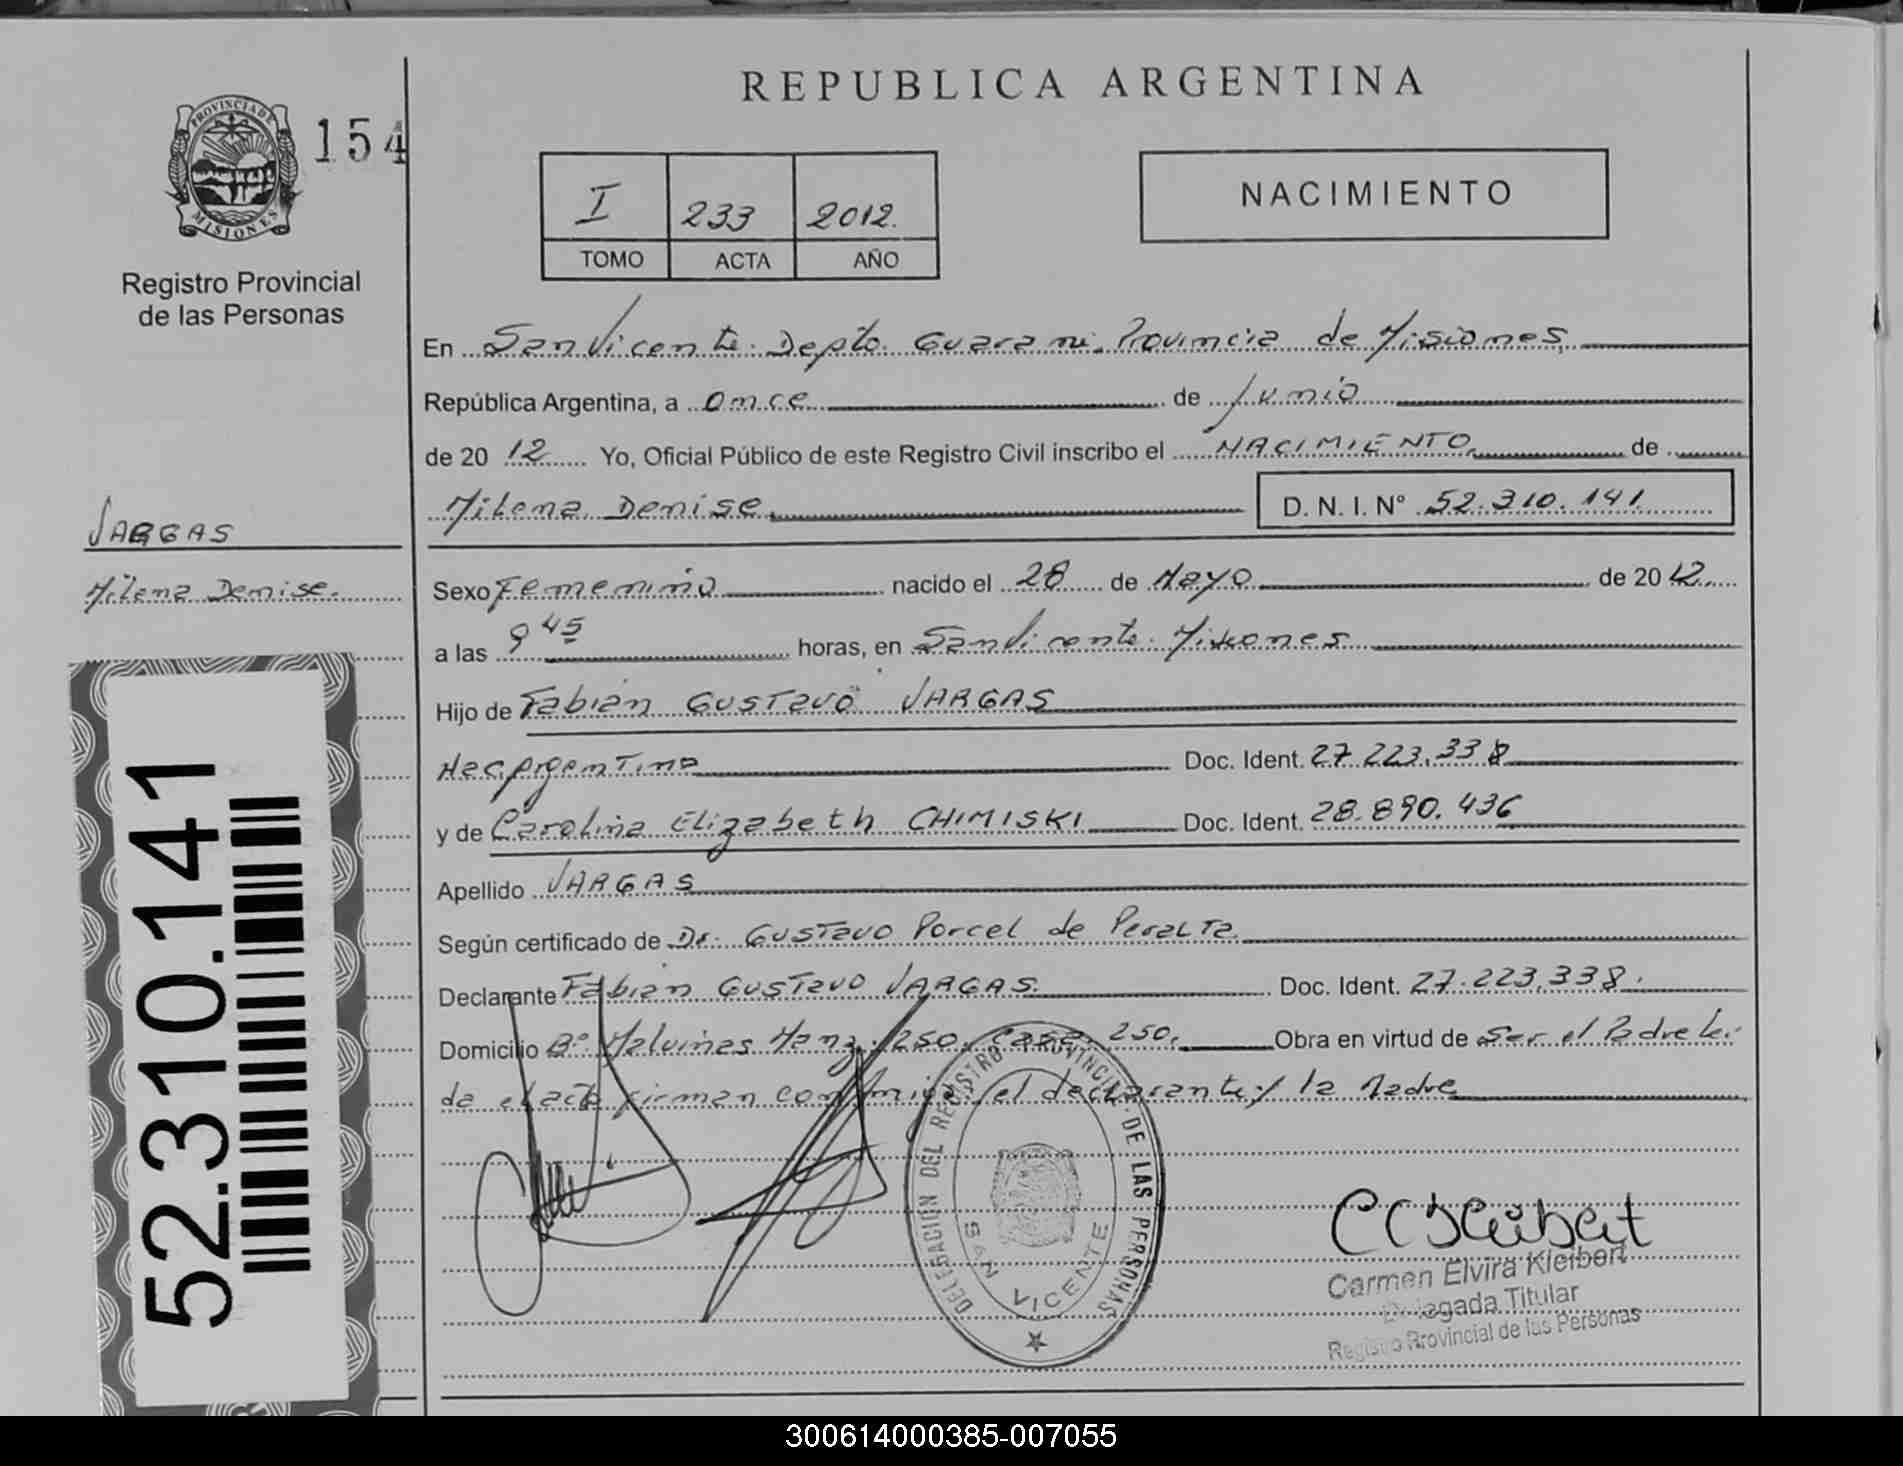 REPUBLICA ARGENTINA
PROVINCIA DE
MISIONES
154
Registro Provincial
de las Personas
I 233 2012.
TOMO ACTA AÑO
NACIMIENTO
En San Vicente. Depto. Guarani. Provincia de Misiones,
República Argentina, a once de Junio
de 2012 Yo, Oficial Público de este Registro Civil inscribo el NACIMIENTO de
Milena Denise D. N. I. N° 52.310.141
VARGAS
Milena Denise.
Sexo Femenino nacido el 28 de Mayo de 2012
a las 9 45 horas, en San Vicente. Misiones
Hijo de Fabián Gustavo VARGAS
Nac. Argentina Doc. Ident. 27.223.338
y de Carolina Elizabeth CHIMISKI Doc. Ident. 28.890.436
Apellido VARGAS
Según certificado de Dr. Gustavo Porcel de Peralta
Declarante Fabián Gustavo VARGAS. Doc. Ident. 27.223.338.
Domicilio B° Malvinas Manz. 250. Casa 250. Obra en virtud de Ser el Padre Lei-
da el acta firman conmigo el declarante y la Madre
52.310.141
DELEGACION DEL REGISTRO PROVINCIAL DE LAS PERSONAS
SAN VICENTE
Carmen Elvira Kleibert
Delegada Titular
Registro Provincial de las Personas
300614000385-007055